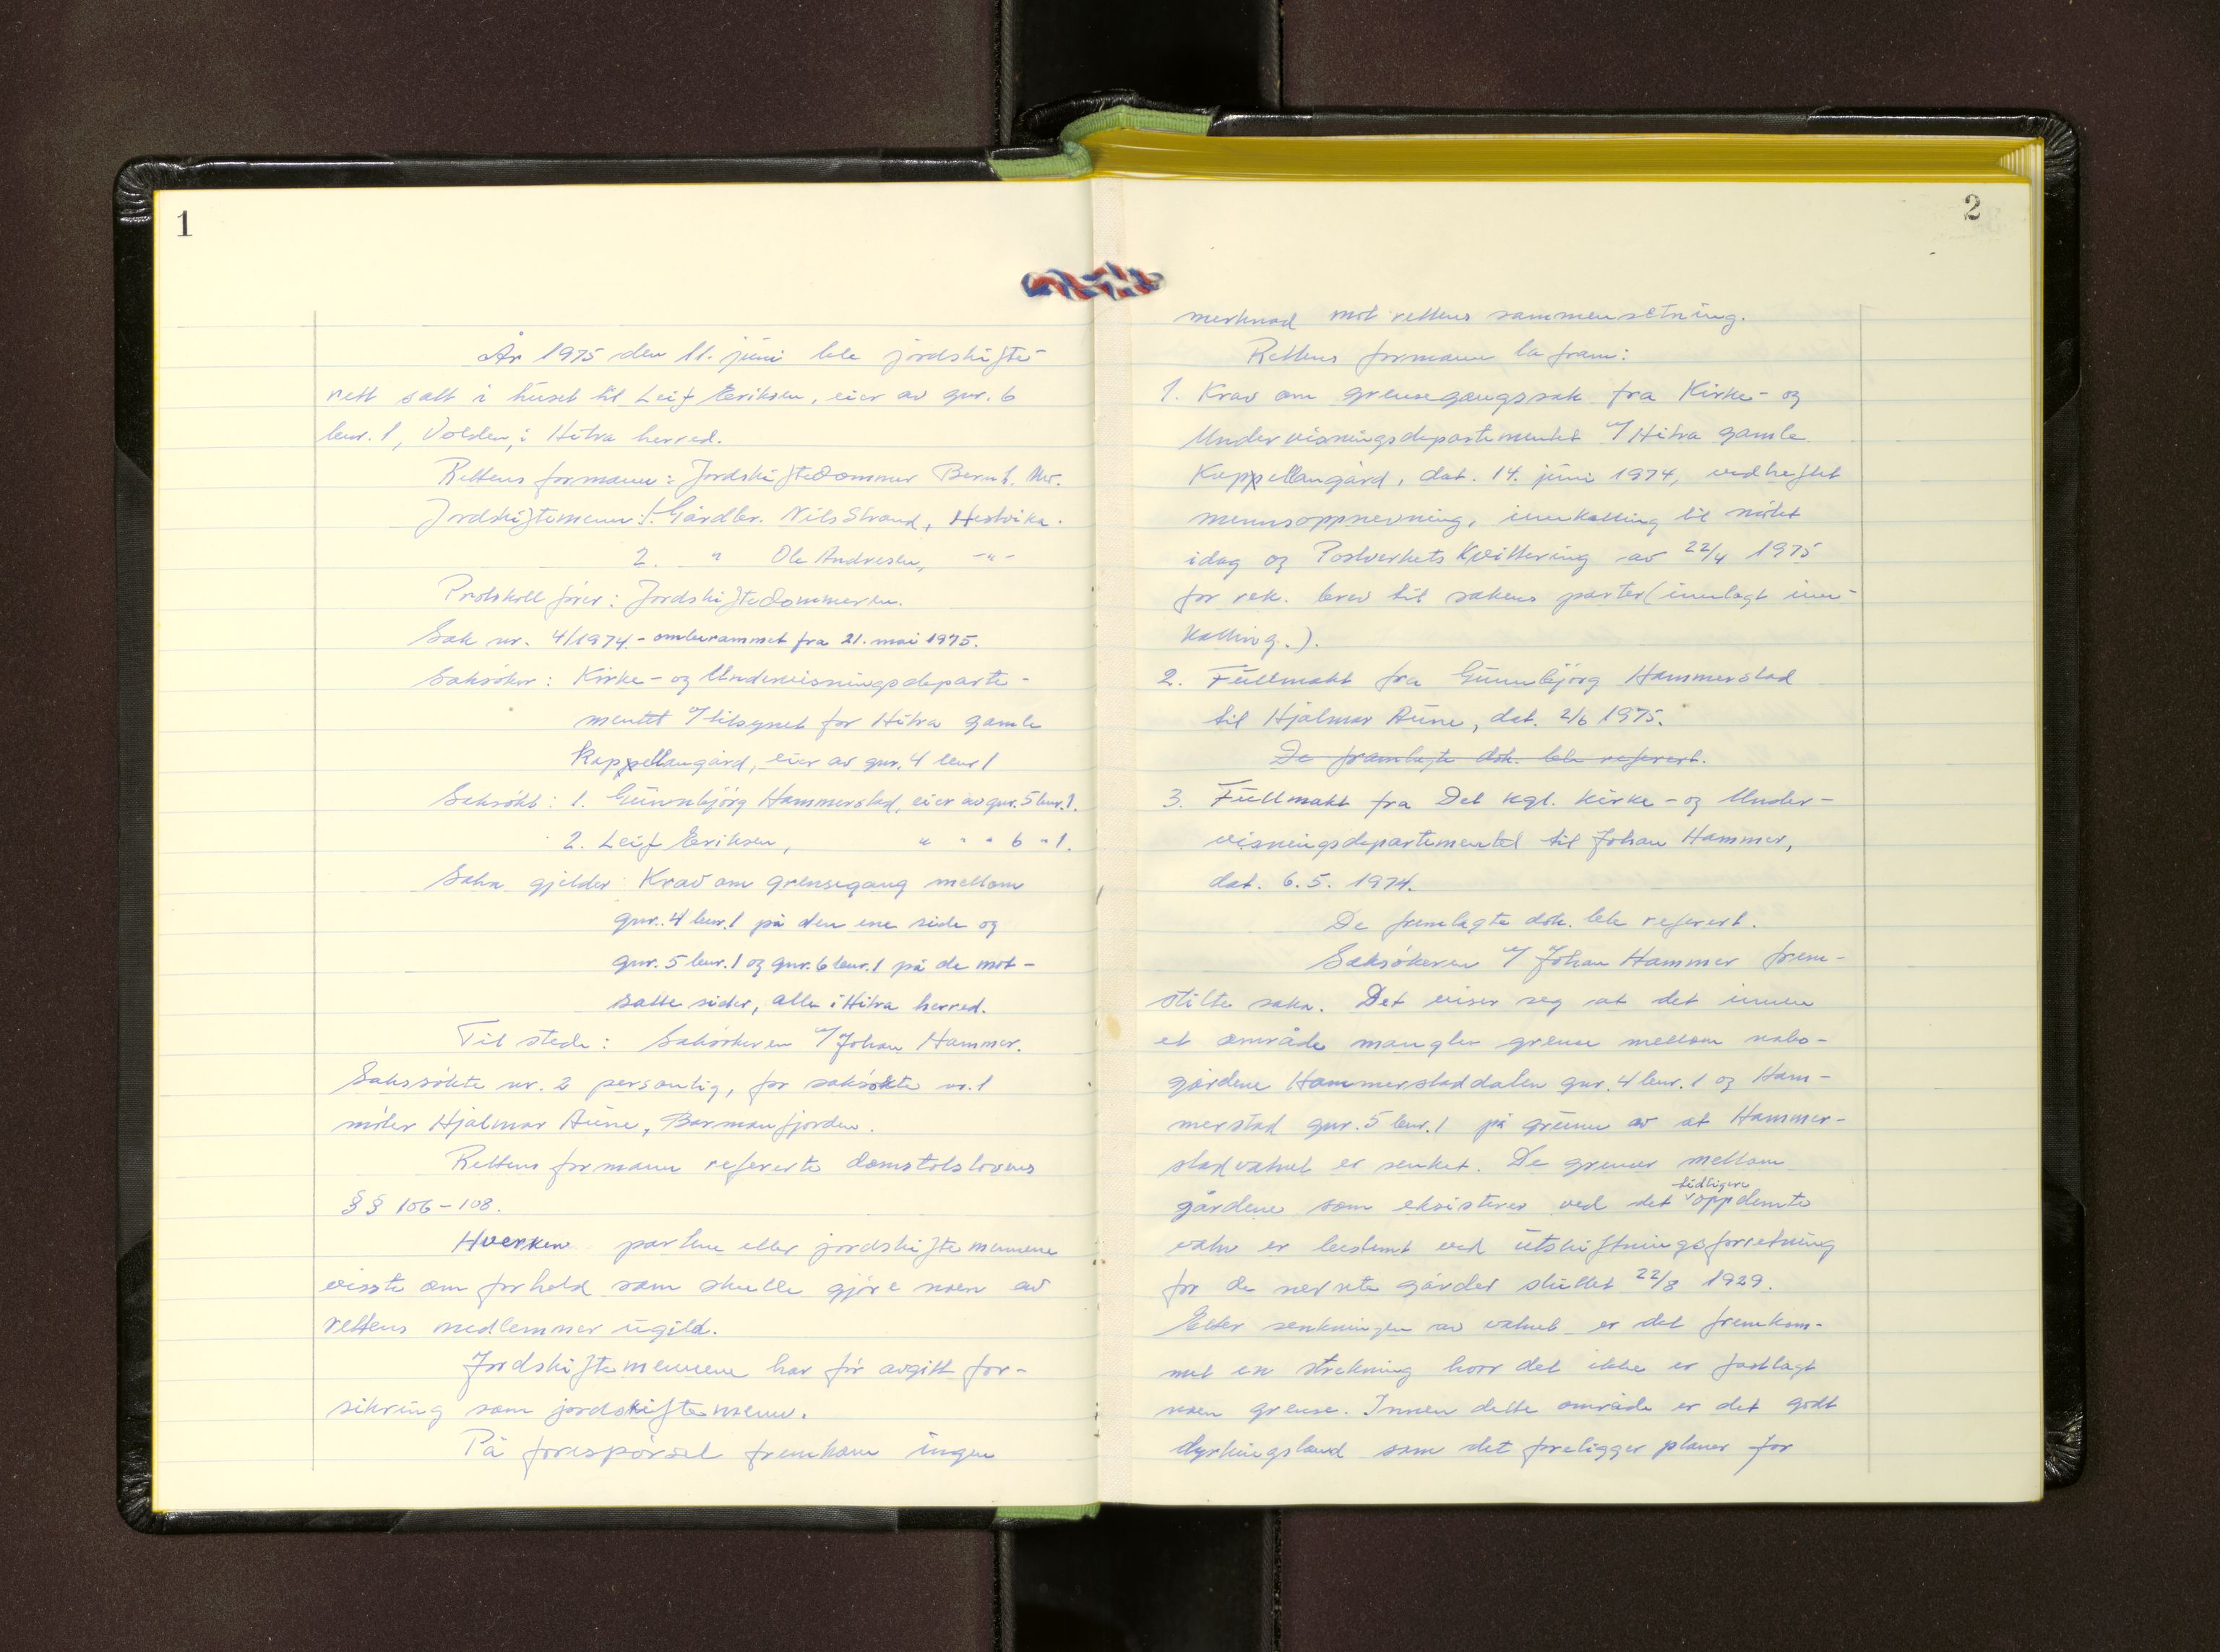 1
År 1975 den 11. juni ble jordskifte-
rett satt i huset til Leif Eriksen, eier av gnr. 6
bnr. 1, Volden, i Hitra herred.
Rettens formann: Jordskiftedommer Bernh. Mo.
Jordskiftemenn: 1. Gårdbr. Nils Strand, Hestvika.
2. " Ole Andresen, -"-
Protokollfører: Jordskiftedommeren.
Sak nr. 4/1974 - omberammet fra 21. mai 1975.
Saksøker: Kirke- og Undervisningsdeparte-
mentet v/tilsynet for Hitra gamle
Kappellangård, eier av gnr. 4 bnr 1
Saksøkt: 1. Gunnbjörg Hammerstad, eier av gnr. 5 bnr. 1.
2. Leif Eriksen, " " " 6 " 1.
Saka gjelder Krav om grensegang mellom
gnr. 4 bnr. 1 på den ene side og
gnr. 5 bnr. 1 og gnr. 6 bnr. 1 på de mot-
satte sider, alle i Hitra herred.
Til stede: Saksøkeren v/Johan Hammer.
Saksøkte nr. 2 personlig, for saksøkte nr. 1
møter Hjalmar Aune, Barmanfjorden.
Rettens formann refererte domstolslovens
§§ 106-108.
Hverken partene eller jordskiftemennene
visste om forhold som skulle gjøre noen av
rettens medlemmer ugild.
Jordskiftemennene har før avgitt for-
sikring som jordskiftemenn.
På forespørsel fremkom ingen
2
merknad mot rettens sammensetning.
Rettens formann la fram:
1. Krav om grensegangssak fra Kirke- og
Undervisningsdepartementet v/Hitra gamle
Kappellangård, dat. 14. juni 1974, vedheftet
mennsoppnevning, innkalling til møtet
idag og Postverkets Kvittering av 22/4 1975
for rek. brev til sakens parter (innlagt inn-
kalling.).
2. Fullmakt fra Gunnbjörg Hammerstad
til Hjalmar Aune, dat. 2/6 1975.
De framlagte dok. ble referert.
3. Fullmakt fra Det kgl. Kirke- og Under-
visningsdepartementet til Johan Hammer,
dat. 6.5. 1974.
De fremlagte dok. ble referert.
Saksøkeren v/ Johan Hammer frem-
stilte saka. Det viser seg at det innen
et område mangler grense mellom nabo-
gårdene Hammerstaddalen gnr. 4 bnr. 1 og Ham-
merstad gnr. 5 bnr. 1 på grunn av at Hammer-
stadvatnet er senket. De grenser mellom
gårdene som eksisterer ved det tidligere oppdemte
vatn er bestemt ved utskiftningsforretning
for de nevnte gårder sluttet 22/8 1929.
Etter senkningen av vatnet er det fremkom-
met en strekning hvor det ikke er fastlagt
noen grense. Innen dette område er det godt
dyrkingsland som det foreligger planer for